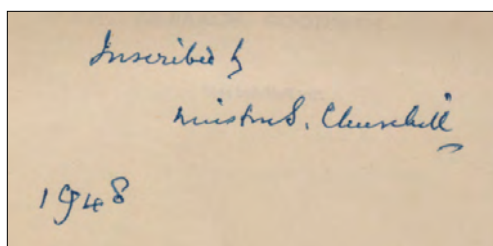 Inscribed by
Winston S. Churchill
1948